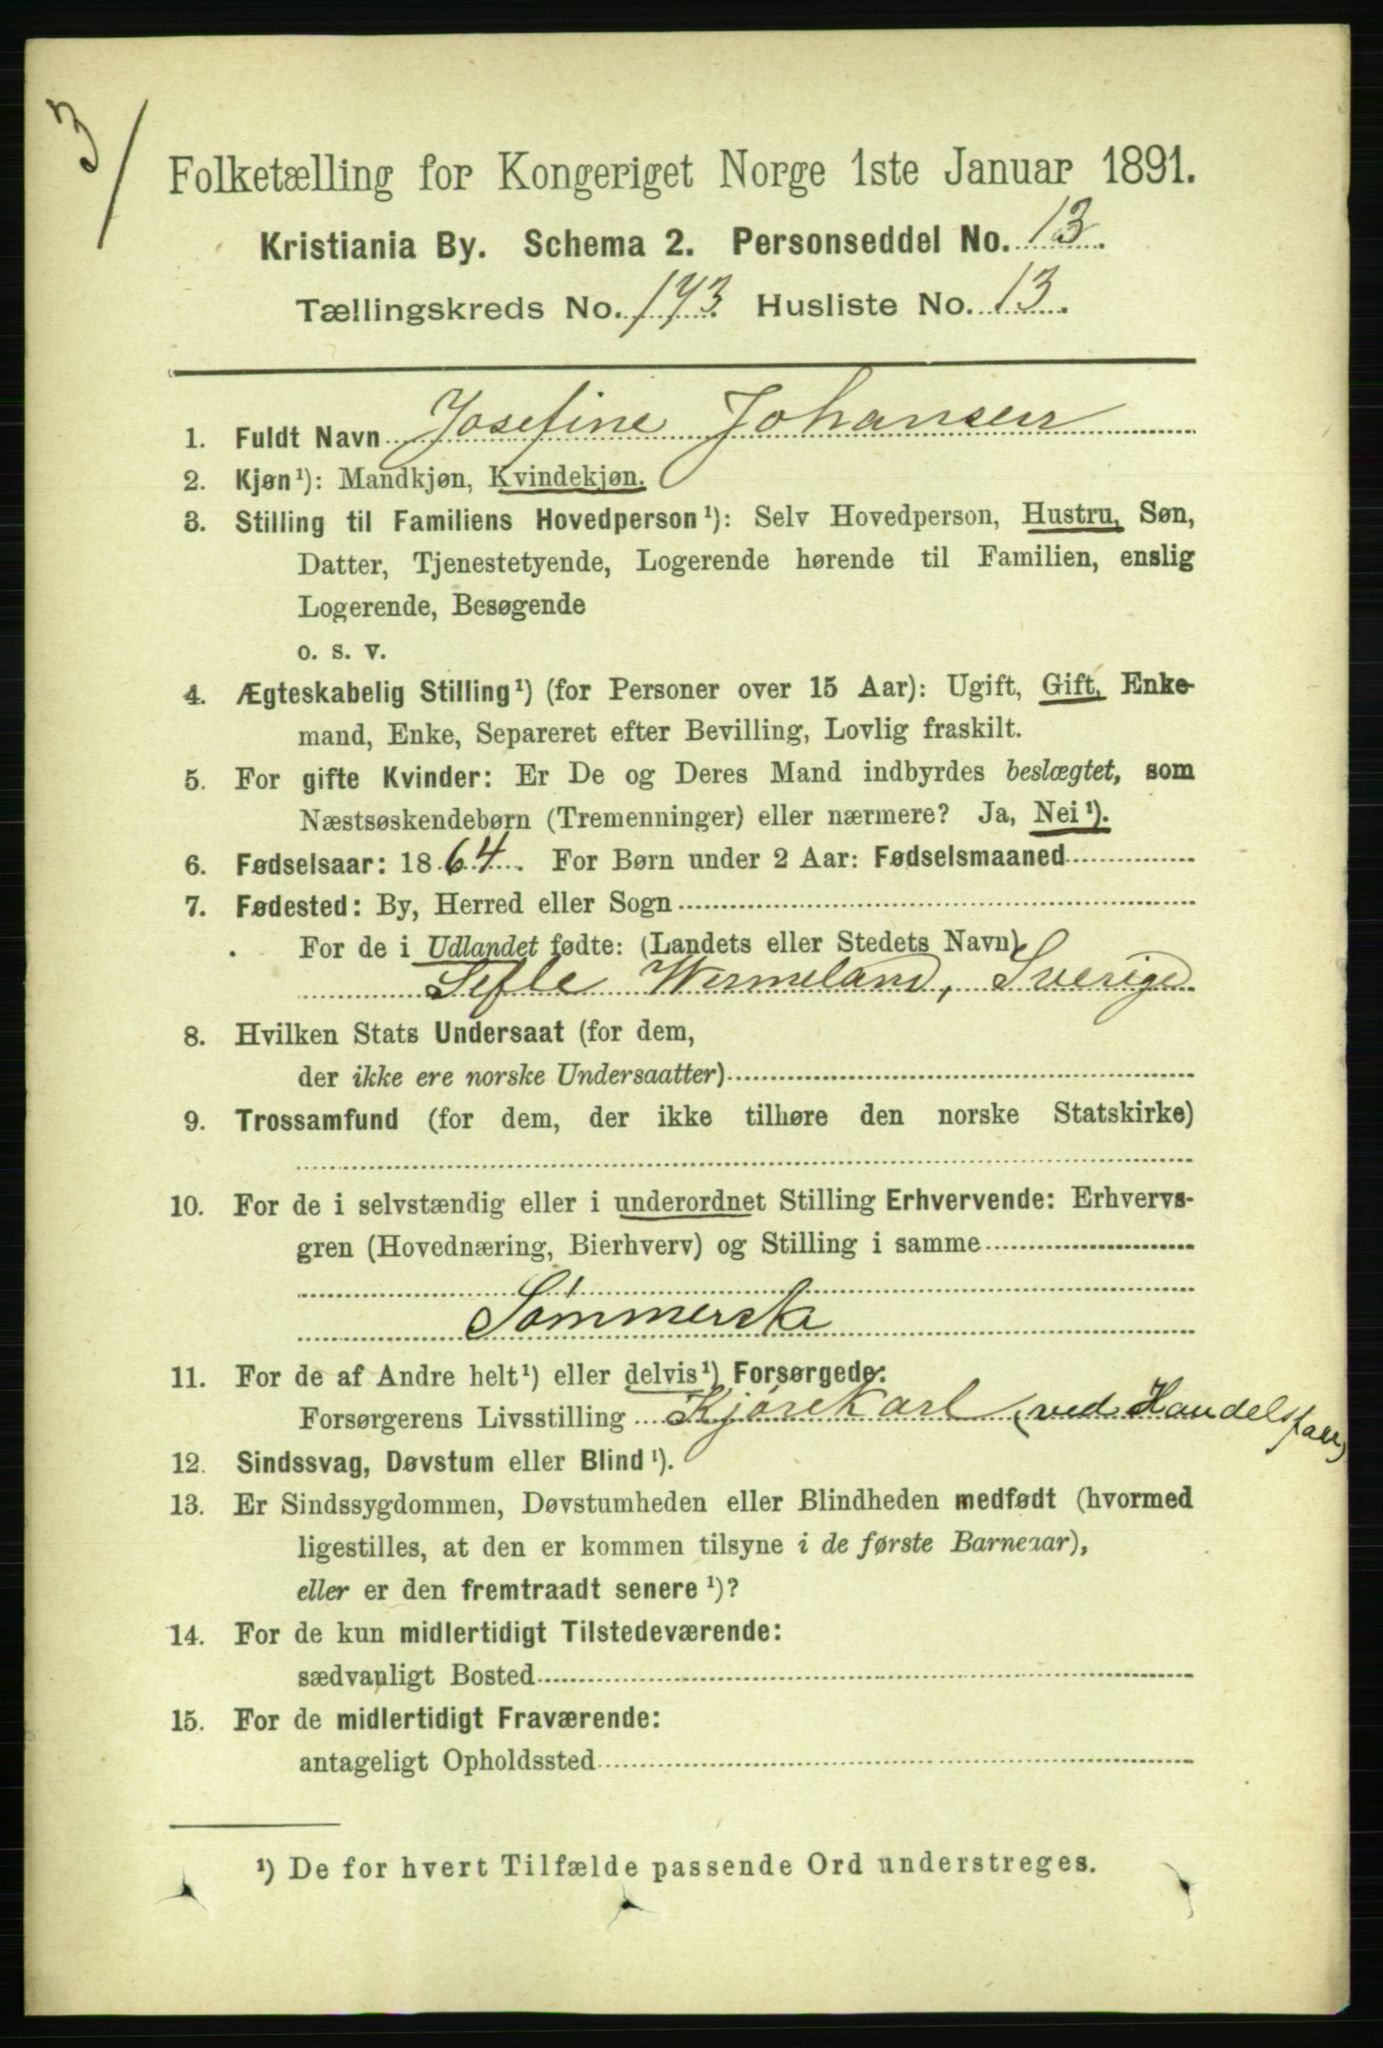 3/
Folketælling for Kongeriget Norge 1ste Januar 1891.
Kristiania By. Schema 2. Personseddel No. 13.
Tællingskreds No. 173. Husliste No. 13.
1. Fuldt Navn Josefine Johansen
2. Kjøn¹): Mandkjøn, Kvindekjøn.
3. Stilling til Familiens Hovedperson¹): Selv Hovedperson, Hustru, Søn,
Datter, Tjenestetyende, Logerende hørende til Familien, enslig
Logerende, Besøgende
o. s. v.
4. Ægteskabelig Stilling¹) (for Personer over 15 Aar): Ugift, Gift, Enke-
mand, Enke, Separeret efter Bevilling, Lovlig fraskilt.
5. For gifte Kvinder: Er De og Deres Mand indbyrdes beslægtet, som
Næstsøskendebørn (Tremenninger) eller nærmere? Ja, Nei¹).
6. Fødselsaar: 1864. For Børn under 2 Aar: Fødselsmaaned
7. Fødested: By, Herred eller Sogn
For de i Udlandet fødte: (Landets eller Stedets Navn)
Sefle Wermeland, Sverige
8. Hvilken Stats Undersaat (for dem,
der ikke ere norske Undersaatter)
9. Trossamfund (for dem, der ikke tilhøre den norske Statskirke)
10. For de i selvstændig eller i underordnet Stilling Erhvervende: Erhvervs-
gren (Hovednæring, Bierhverv) og Stilling i samme
Sömmerska
11. For de af Andre helt¹) eller delvis¹) Forsørgede:
Forsørgerens Livsstilling Kjörekarl (ved Handel
12. Sindssvag, Døvstum eller Blind¹).
13. Er Sindssygdommen, Døvstumheden eller Blindheden medfødt (hvormed
ligestilles, at den er kommen tilsyne i de første Barneaar),
eller er den fremtraadt senere¹)?
14. For de kun midlertidigt Tilstedeværende:
sædvanligt Bosted
15. For de midlertidigt Fraværende:
antageligt Opholdssted
¹) De for hvert Tilfælde passende Ord understreges.